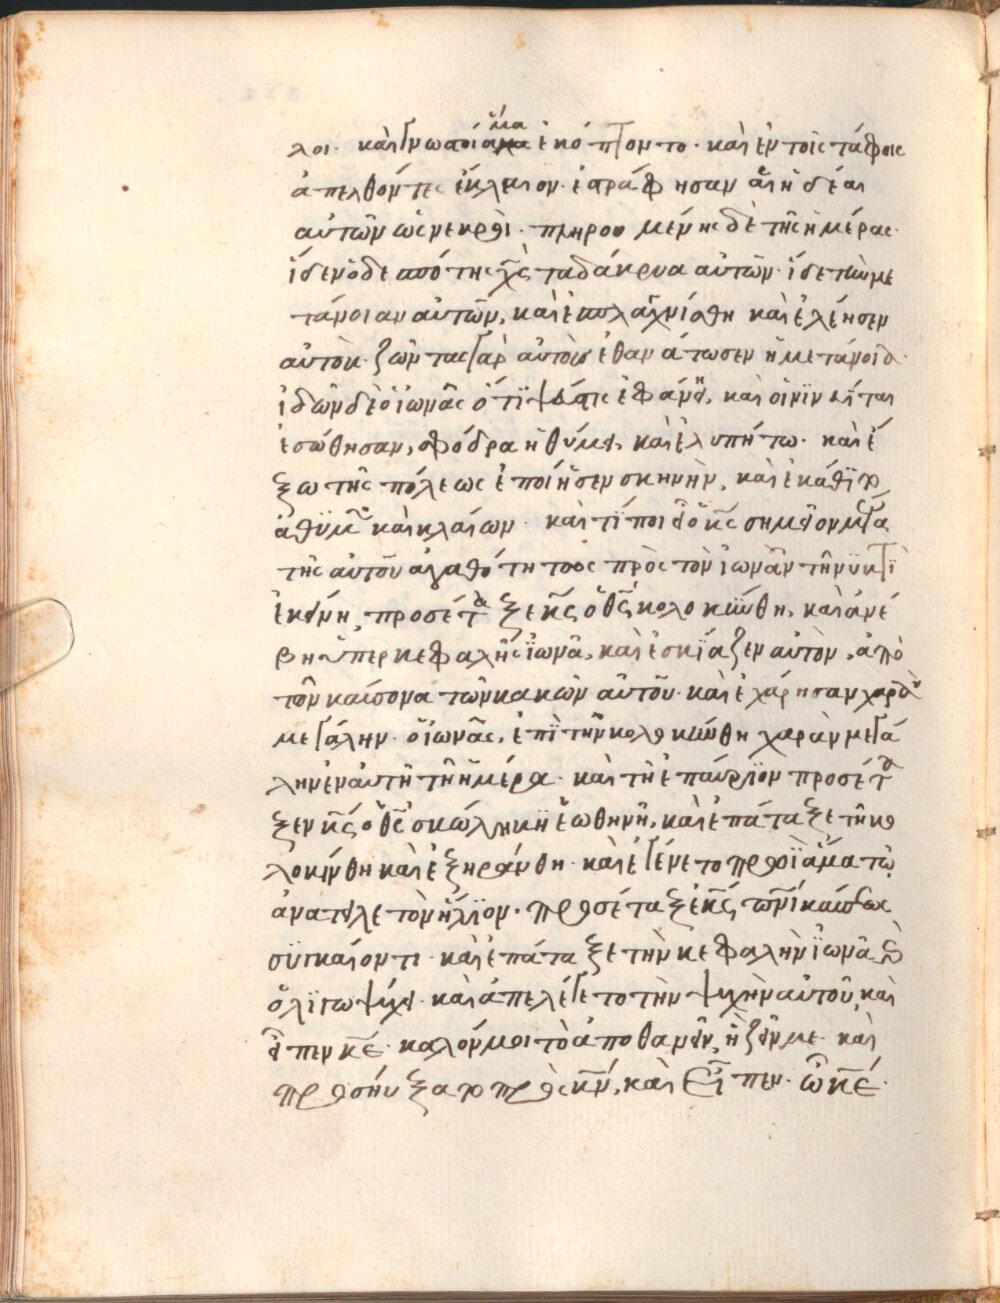 λοι· καὶ γυναῖοι ἅμα ἐκόπτοντο· καὶ ἐν τοῖς τάφοις
ἀπελθόντες ἔκλαιον· ἐστράφησαν αἱ ἡδέαι
αὐτῶν ὡς νεκροὶ· πληρουμένης δὲ τῆς ἡμέρας·
ἴδεν ὁ δε ἀπό της γῆς τα δάκρυα αὐτῶν· ἴδε τὴν με
τάνοιαν αὐτῶν, καὶ ἐσπλαχνίσθη καὶ ἐλέησεν
αὐτοὺς· ζῶντας γὰρ αὐτοὺς ἐθανάτωσεν ἡ μετάνοια·
ἰδὼν δὲ ὁ ἰωνᾶς ὅτϊ ψεύστης ἐφάνη, καὶ οἱ νϊνευῖται
ἐσώθησαν, σφόδρα ἠθύμει, καὶ ἐλυπήτω· καὶ ἔ
ξω τῆς πόλεως ἐποίησεν σκηνὴν, καὶ ἐκάθϊτο
ἀθϋμῶν καὶ κλαίων· καὶ τί ποιεῖ ὁ κ̅ς̅ σημεῖον μέγα
τῆς αὐτοῦ ἀγαθότητος πρὸς τὸν ἰωνᾶν τὴν νϋκτϊ
ἐκείνη, προσέταξε κ̅ς̅ ὁ θ̅ς̅ κολοκύνθη, καὶ ἀνέ
βη ὑπερ κεφαλῆς ϊωνᾶ, καὶ ἐσκΐαζεν αὐτὸν, ἀπὸ
τὸν καύσονα τῶν κακῶν αὐτοῦ· καὶ ἐχάρησαν χαρὰν
μεγάλην· ὁ ἰωνᾶς, ἐπῒ τὴν κολοκύνθη χαρὰν μεγά
λην ἐν αὐτῆ τῆ ἡμέρα· καὶ τῆ ἐπαύρϊον προσέτα
ξεν κ̅ς̅ ὁ θ̅ς̅ σκώληκϊ ἑωθηνῆ, καὶ ἐπάταξε τὴν κο
λοκύνθη καὶ ἐξηράνθη· καὶ ἐγένετο πρωῒ ἅμα τῷ
ἀνατεῖλε τὸν ἥλϊον· προσέταξε κ̅ς̅
συγκαίοντι· καὶ ἐπάταξε τὴν κεφαλὴν ϊωνᾶ
ὀλϊγωψύχει· καὶ ἀπελέγετο τὴν ψυχὴν αὐτοῦ, καὶ
εἶπεν κ̅ε̅· καλόν μοι τὸ ἀποθανεῖν, ἢ ζεῖν με· καὶ
προσηύξατο πρὸς κ̅ν̅, καὶ εἶπεν· ὦ κ̅ε̅·